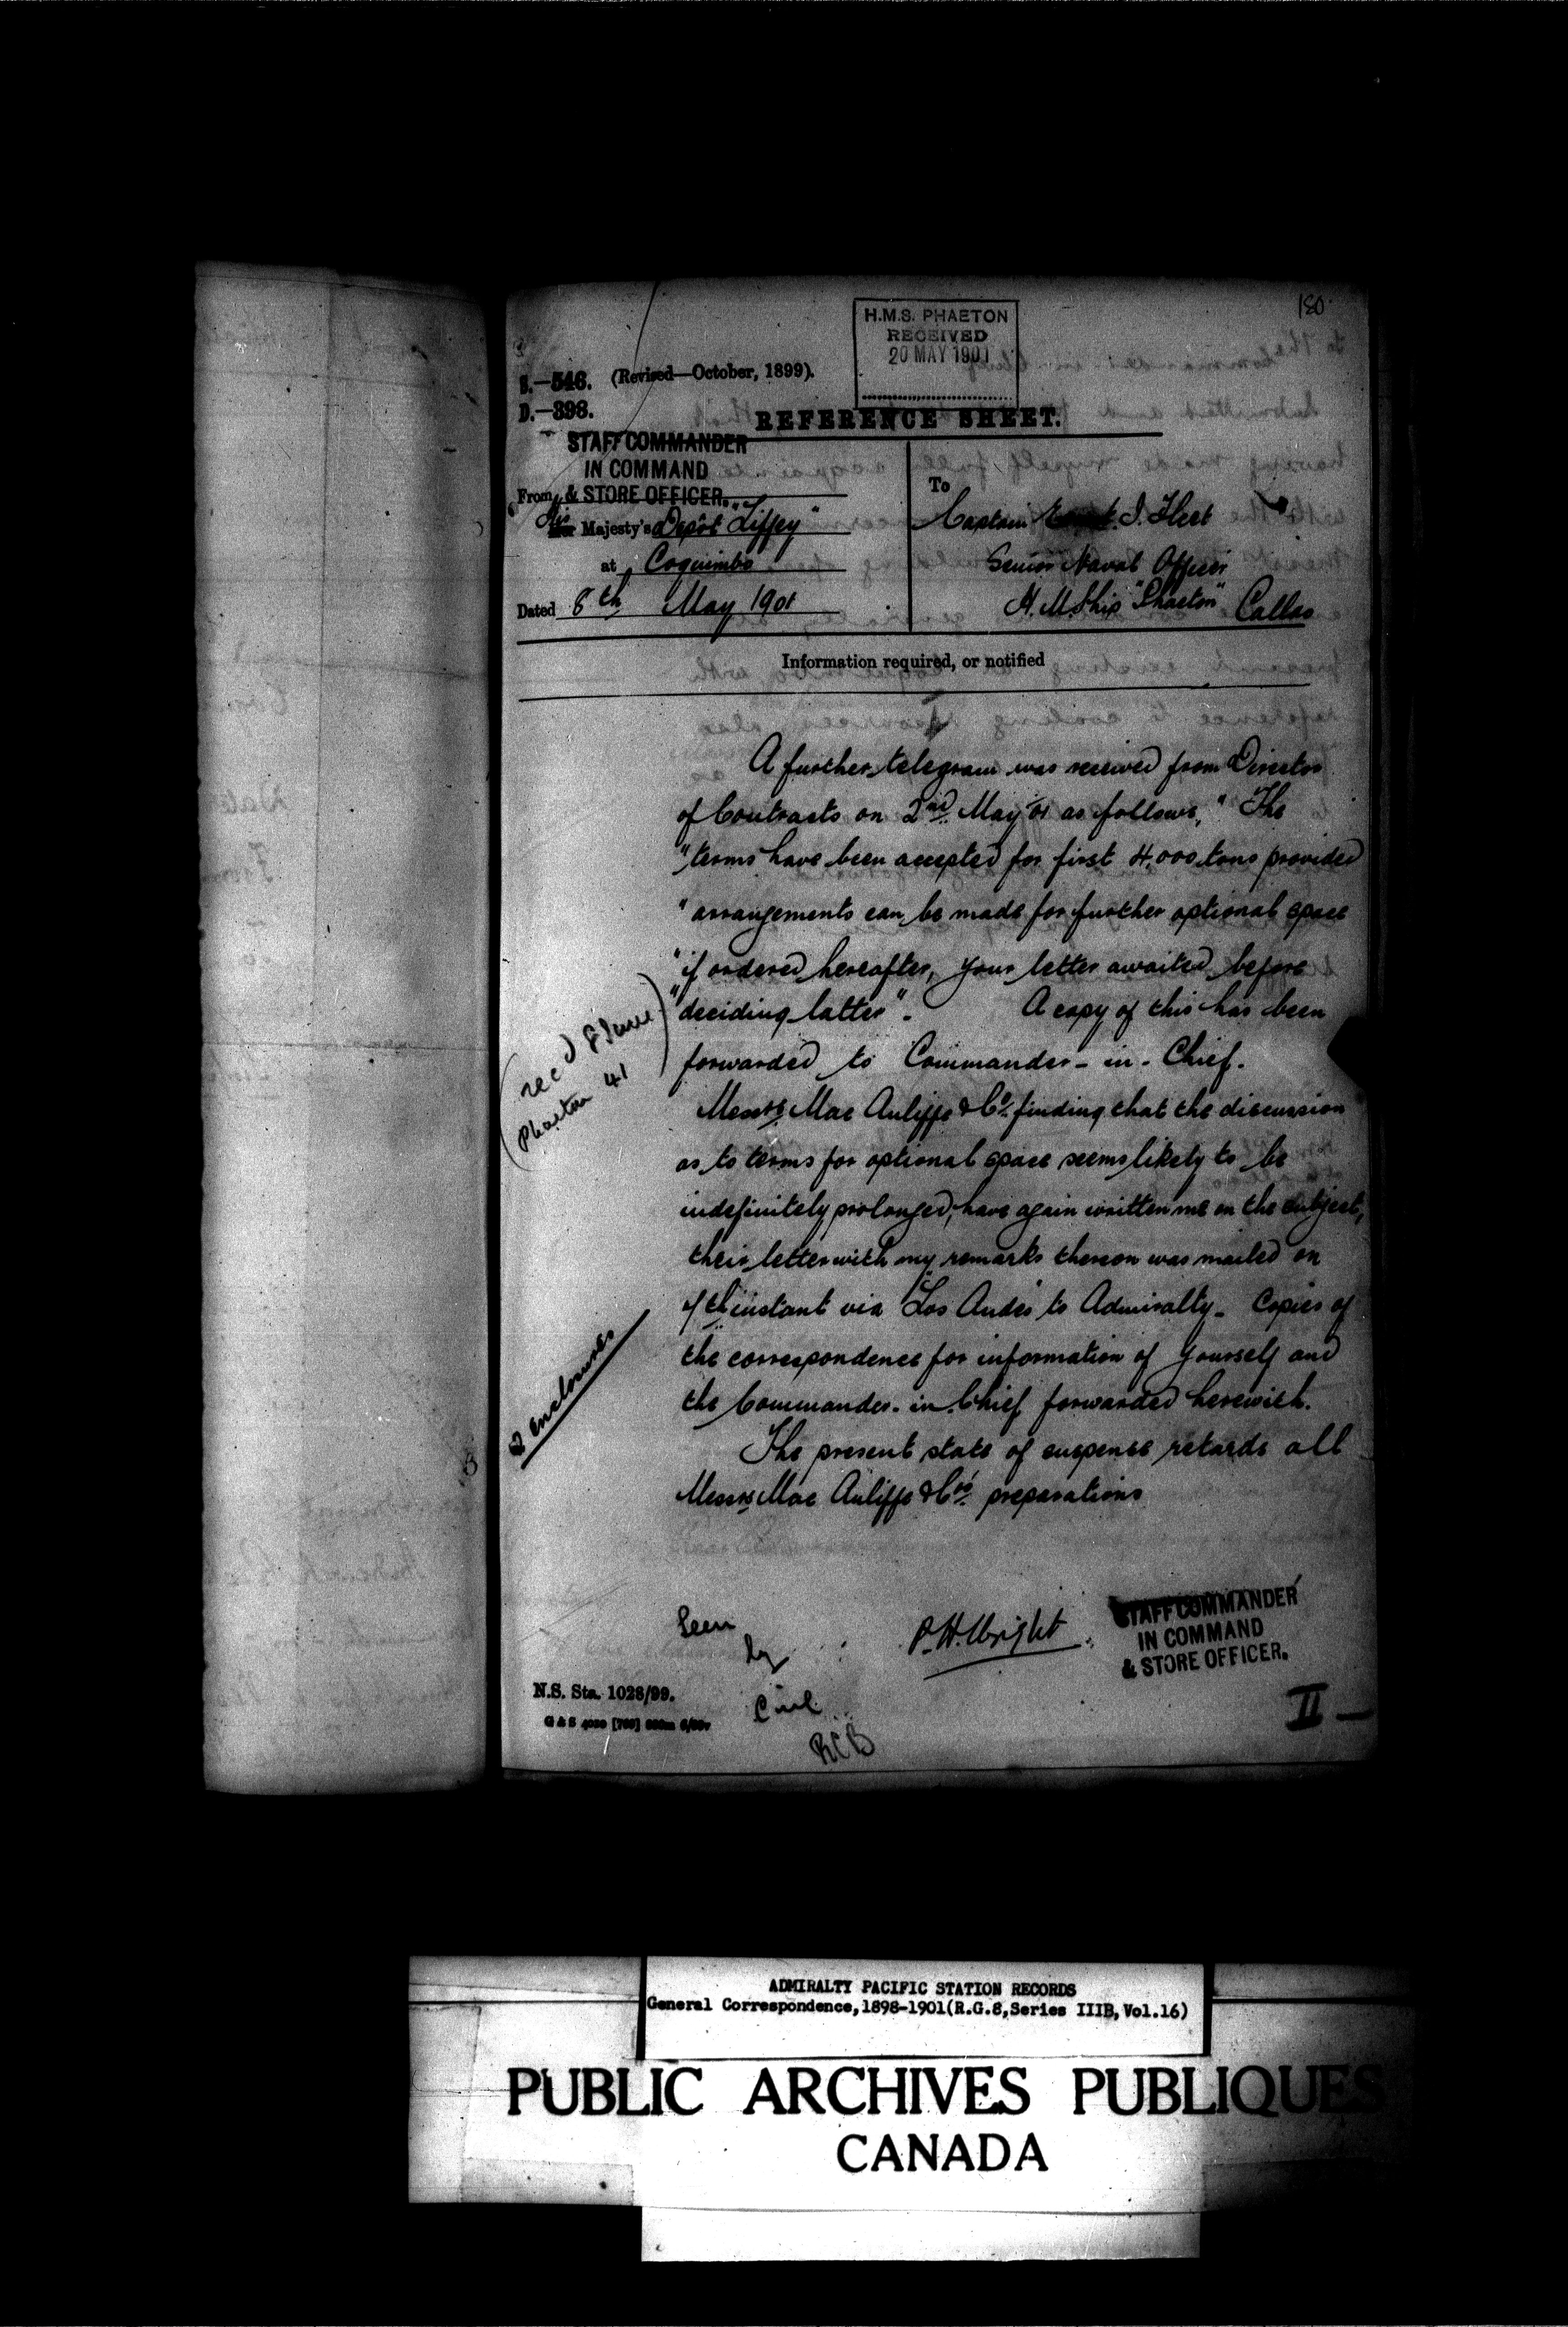 180
H.M.S. PHAETON
RECEIVED
20 MAY 1901
S.—546. (Revised—October, 1899).
D.—398.
REFERENCE SHEET.
STAFF COMMANDER
IN COMMAND
& STORE OFFICER.
From
His Majesty's Depôt "Liffey"
at Coquimbo
Dated 8th May 1901
To
Captain I. Fleet
Senior Naval Officer
H.M. Ship "Phaeton" Callao
Information required, or notified
A further telegram was received from Director
of Contracts on 2nd May 01 as follows, "The
"terms have been accepted for first 4,000 tons provided
"arrangements can be made for further optional space
"if ordered hereafter, your letter awaited before
"deciding latter". A copy of this has been
forwarded to Commander-in-Chief.
Messrs Mac Auliffe & Co. finding that the discussion
as to terms for optional space seems likely to be
indefinitely prolonged, have again written me on the subject,
their letter with my remarks thereon was mailed on
instant via "Los Andes" to Admiralty. Copies of
the correspondence for information of yourself and
the Commander-in-Chief forwarded herewith.
The present state of suspense retards all
Messrs Mac Auliffe & Co's preparations
(recd 8 June)
Phaeton 41
2 enclosures
Seen
by
C in C
RCB
P.H. Wright
STAFF COMMANDER
IN COMMAND
& STORE OFFICER.
N.S. Sta. 1028/99.
II
ADMIRALTY PACIFIC STATION RECORDS
General Correspondence,1898-1901(R.G.8,Series IIIB,Vol.16)
PUBLIC ARCHIVES PUBLIQUES
CANADA